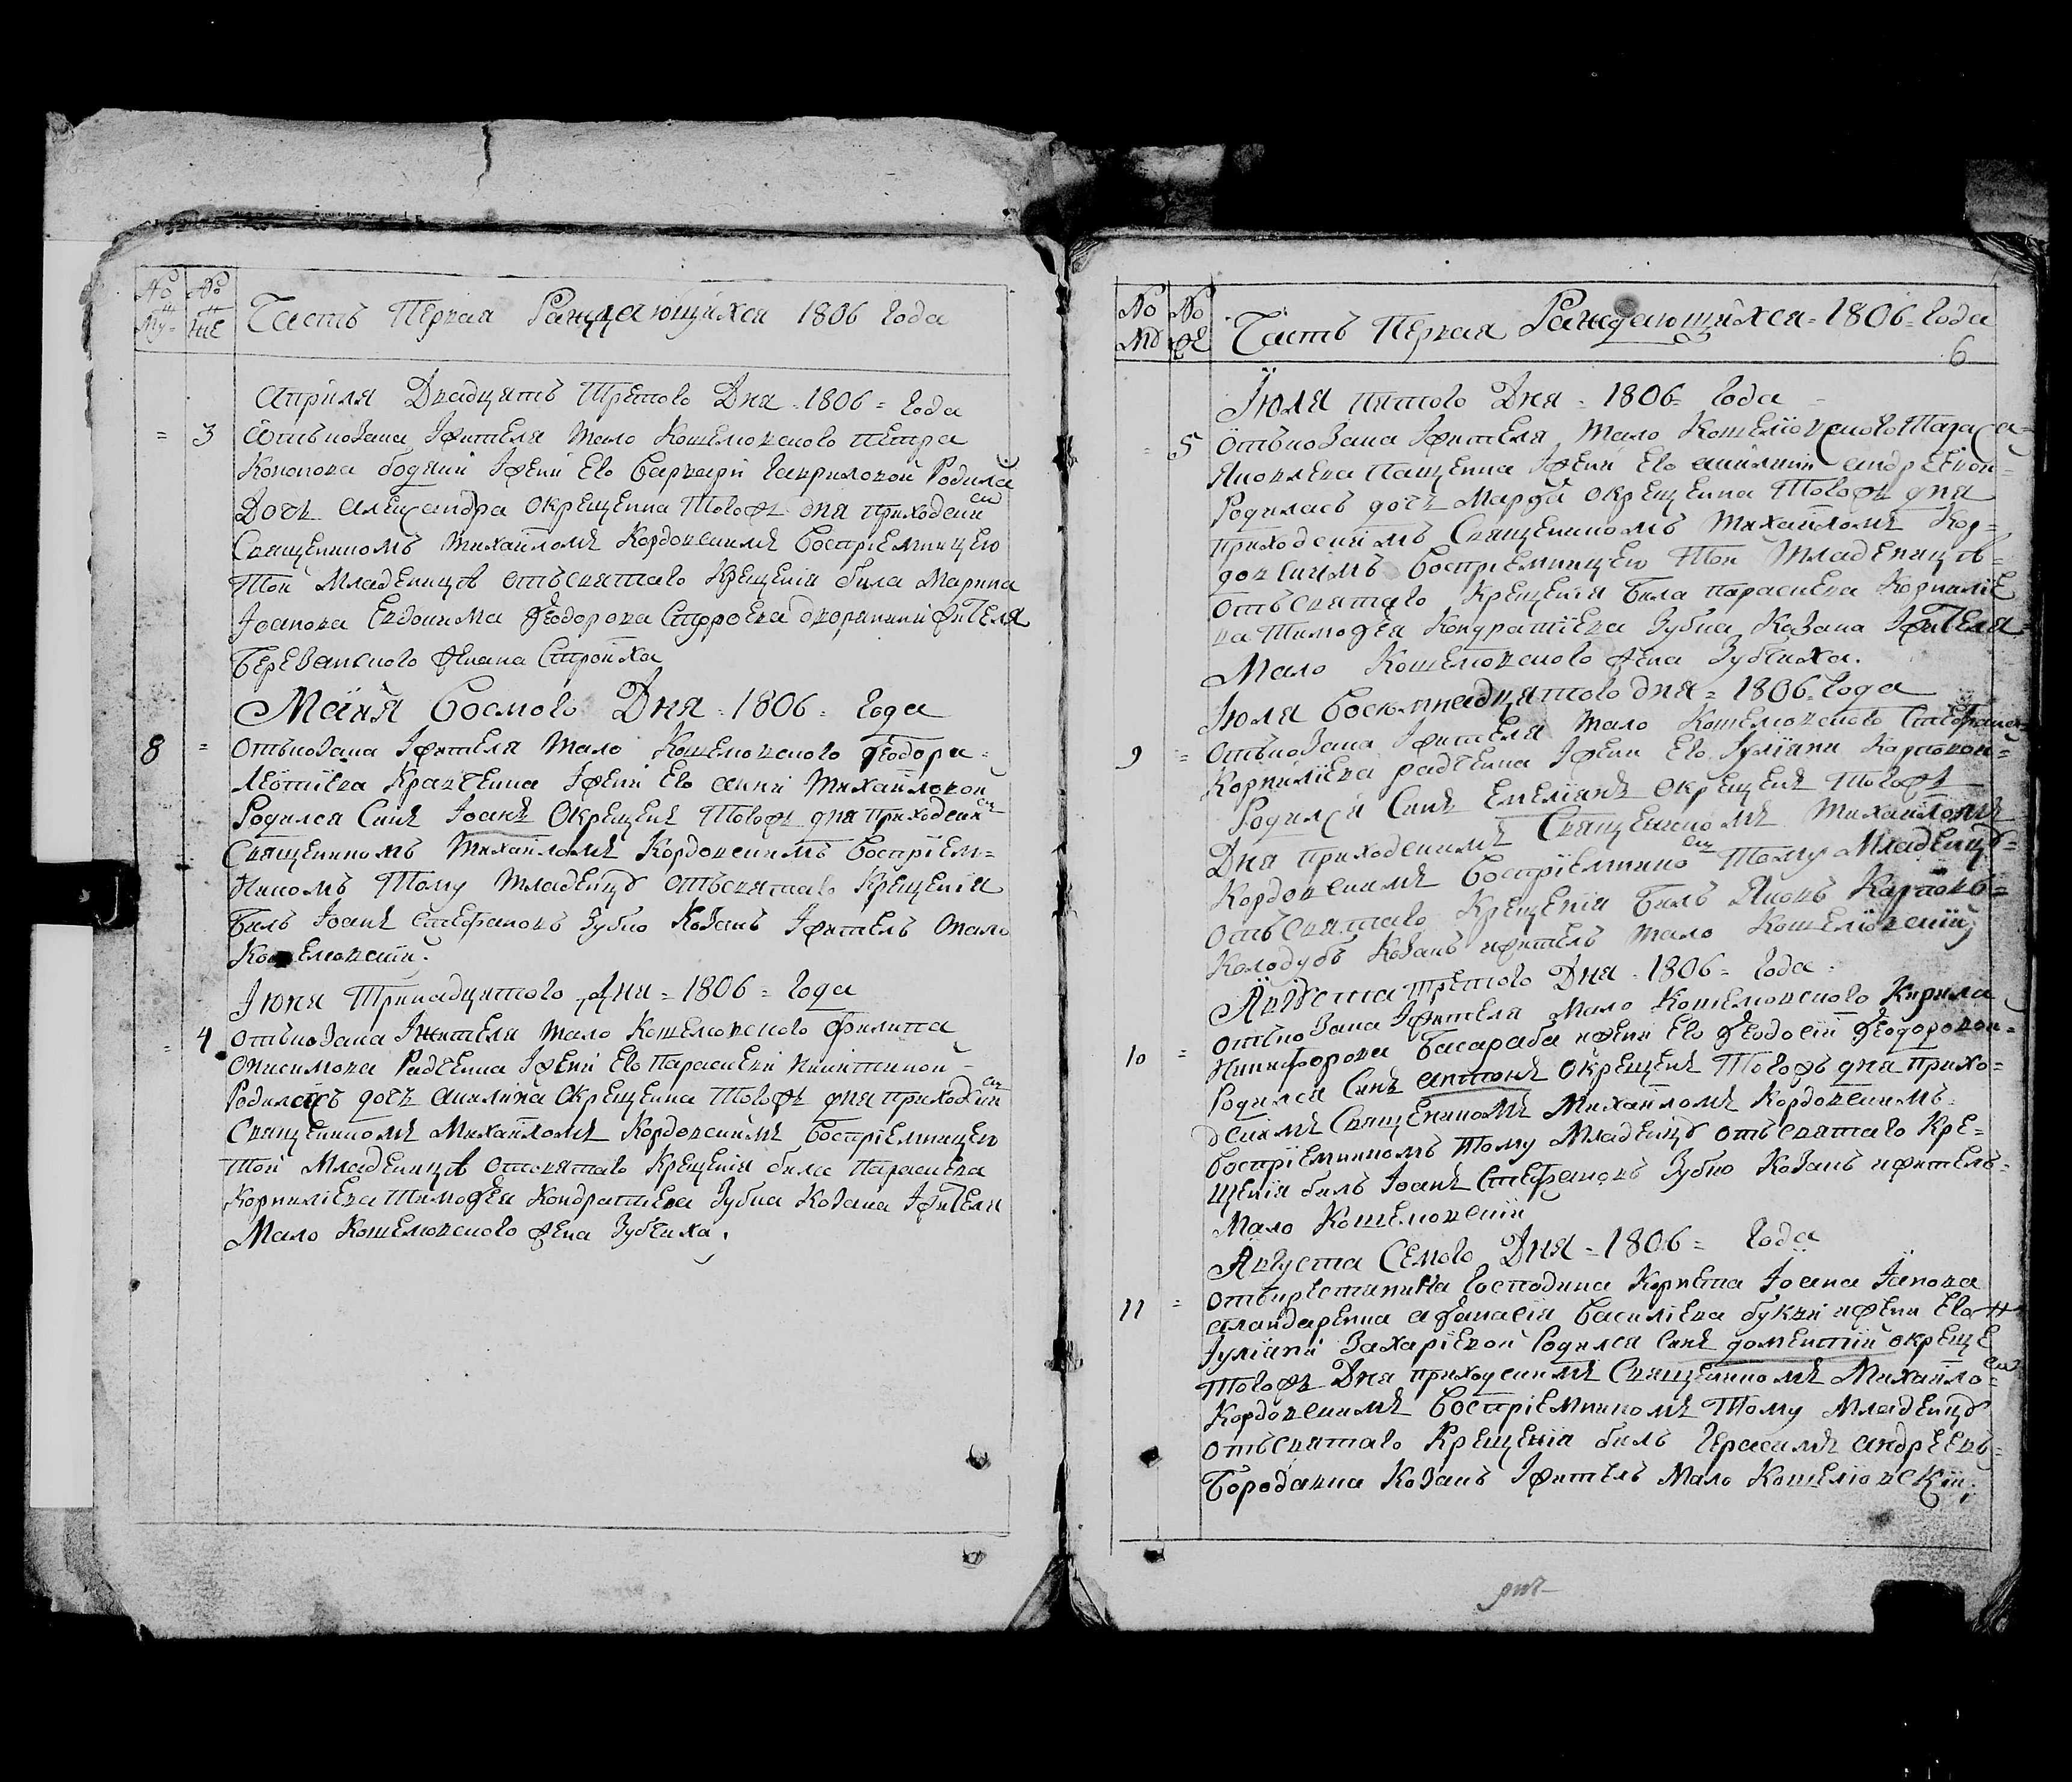 No No
Му= Же
Часть Первая Раждающихся 1806 Года
Априля Двадцять Третого Дня = 1806 = Года
= 3 Отъкозака Жителя Мало Кошелювского Петра
Кононова Бодний Жени Его Варвари Гавриловой Родилась
Дочъ Александра Окрещенна Тогожъ дня приходским
Священникомъ Михайломъ Кордовскимъ Воспріемницею
Той Младеницѣ отъсвятаго Крещенія била Марина
Іоанова Евдокима Феодорова Строева дворянина жителя
Березанского жена Строиха
Майя Восмого Дня = 1806 = Года
8 = Отъкозака Жителя Мало Кошелювского Феодора
Леонтіева Кравченка Жени Его Анни Михайловой
Родился Синъ Іоанъ Окрещенъ Тогожъ дня приходским
Священникомъ Михайломъ Кордовскимъ Воспріем=
никомъ Тому Младенцу отъсвятаго Крещенія
Билъ Іоанъ Стефановъ Зубко Козакъ Жителъ Мало
Кошелювскій.
Іюня Тринадцятого Дня = 1806 = Года
= 4 Отъкозака Жителя Мало Кошелювского Филиппа
Онисимова Радченка Жени Его Параскеви Никитиной
Родиласъ дочъ Акилина Окрещенна Тогожъ дня приходским
Священникомъ Михайломъ Кордовскимъ Воспріемницею
Той Младеницѣ отсвятаго Крещенія била Параскева
Корниліева Тимофея Кондратіева Зубка Козака Жителя
Мало Кошелювского жена Зубчиха.
No No
Мд же
Часть Первая Раждающихся = 1806 = Года
6
Іюля пятого Дня = 1806 = Года
= 5 Отъкозака Жителя Мало Кошелювского Тараса
Яковлева Пащенка Жени Его Акилини Андреевой=
Родиласъ дочъ Марфа Окрещенна Тогожъ дня
приходскимъ Священникомъ Михайломъ Кор=
довскимъ Воспріемницею Той Младеницѣ=
Отъсвятаго Крещенія Била Параскева Корниліе
ва Тимофея Кондратіева Зубка Козака Жителя=
Мало Кошелювского жена Зубчиха.
Іюля Восемнадцятого дня = 1806 = Года
9 = Отъкозака Жителя Мало Кошелювского Стефана
Корниліева Радченка Жени Его Іуліяни Карповой=
Родился Синъ Емеліанъ Окрещенъ Тогожъ
Дня приходскимъ Священникомъ Михайломъ
Кордовскимъ Воспріемникомъ Тому Младенцу=
Отъсвятаго Крещенія Билъ Яковъ Карповъ=
Колодубъ Козакъ жителъ Мало Кошелювскій
Августа третого Дня = 1806 = Года
10 = Отъкозака Жителя Мало Кошелювского Кирила
Никифорова Басараба жени Его Феодосіи Феодоровой=
Родился Синъ Антонъ Окрещенъ Тогожъ дня прихо=
дскимъ Священникомъ Михайломъ Кордовскимъ
Воспріемникомъ Тому Младенцу отъсвятаго Кре=
щенія билъ Іоанъ Стефановъ Зубко Козакъ жителъ=
Мало Кошелювскій
Августа Семого Дня = 1806 = Года
11 = Откирестянина Господина Корнета Іоана Іанова
Афанасія Василіева жени Его
Іуліяни Захаріевой Родился Синъ Доментій окреще
Тогожъ Дня приходскимъ Священникомъ Михайло=
Кордовскимъ Воспріемникомъ Тому Младенцу
отъсвятаго Крещенія билъ Герасимъ Андреевъ=
Бородавка Козакъ Жителъ Мало Кошелювскій;